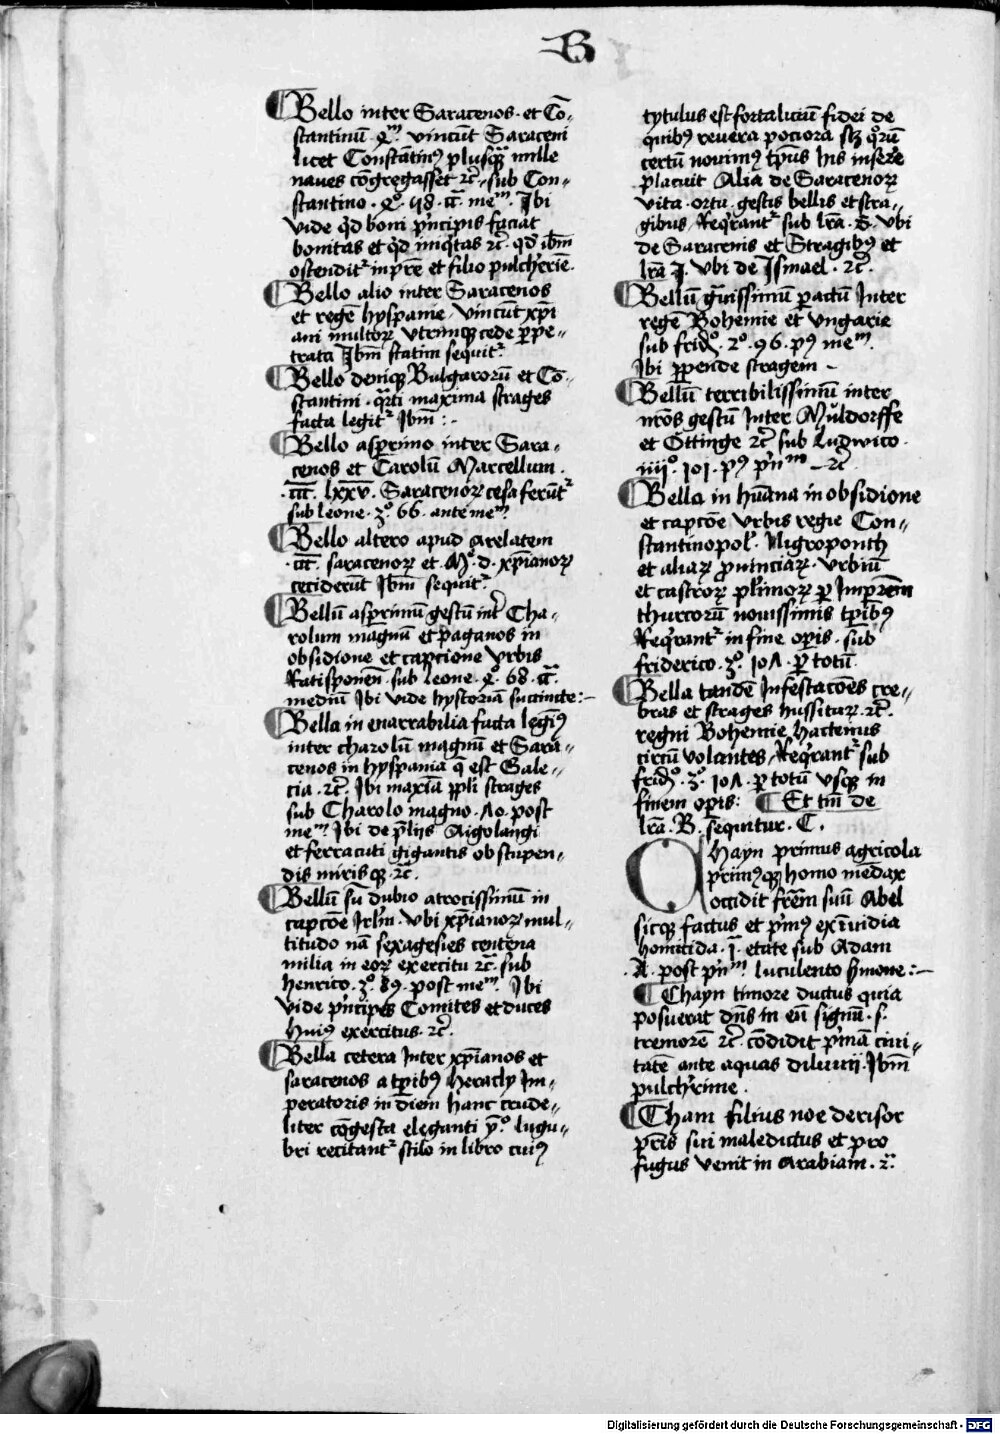 B
Bello inter Saracenos· et Cō-
stantinū qm̄ vincūt Saraceni
licet Constātin9 plusq̄ȝ mille
naves cōgregasset ꝛc̄· sub Con-
stantino · Ibi
vide qd boni p'ncipis faciat
bonitas et qd iniq'tas ꝛc̄ qd ibm̄
ostendit~ in pr̄e et filio pulch'rie
Bello alio inter Saracenos
et regē hyspanie vincūt xp̄i
ani multoꝝ utrimqȝ cede ꝑpe-
trata Ibm̄ statim sequit~
Bello deniqȝ Bulgaroꝝ et Cō-
stantini · q̄rti maxima strages
facta legit~ Ibm̄ :-
Bello asperimo inter Sara-
cenos et Carolū Marcellum ·
· lxxv · Saracenoꝝ cesa ferūt~
sub leone · 3o 66 · ante mem̄
Bello altero apud arelatem
· saracenoꝝ et · Mo · d · xp̄ianoꝝ
ceciderūt Ibm̄ sequit~
Bellū asperimū gestū int' Cha-
rolum magnū et paganos in
obsidione et captione vrbis
Ratisponen̄ · sub leone · 68 ·
mediū Ibi vide hystoriā succincte :-
Bella in enarrabilia facta legim9
inter charolū magnū et Sara-
cenos in hyspania q̄ est Gale-
cia · ꝛc̄ · Ibi maxīa pp̄li strages
sub Charolo magno · 40 · post
mem̄ Ibi de p̄liis Aigolangi
et ferracuti gigantis ob stupen-
dis mirisqȝ · ꝛc̄ ·
Bellū sū dubio atrocissimū in
captōe Jrlm̄ · vbi xp̄ianoꝝ mul-
titudo nā sexagesies centena
milia in eoꝝ exercitu ꝛc̄ · sub
henrico · 3o · 89 · post mem̄ Ibi
vide p'ncipes Comites et duces
huius exercitus · ꝛc̄ ·
Bella cetera Inter xp̄ianos et
saracenos a tp̄ib9 heracly Im-
peratoris in diem hanc crude-
liter cōgesta eleganti lugu-
bri recitant~ stilo in libro cui9
tytulus est fortaliciū fidei de
quib9 revera pociora sȝ quoꝝ
certū novim9 tp̄us his inserere
placuit Alia de Saracenoꝝ
vita · ortu · gestis bellis et stra-
gibus · Req'rant~ sub lr̄a · S · vbi
de Saracenis et Stragib9 et
lr̄a J · vbi de Ismael · ꝛc̄ ·
Bellū g'uissimū ꝑactū Inter
regē Bohemie et vngarie
sub frido · 2o · 96 · p9 mem̄
Ibi ꝑpende stragem -
Bellū terribilissimū inter
nr̄os gestū Inter Muldorffe
et Ottinge ꝛc̄ sub Ludwico ·
iiiio · 101 · p9 p'nm̄ - ꝛc̄
Bella in huāna in obsidione
et captōe vrbis regie Con-
stantinopol' · Nigroponth
et aliaꝝ ꝓuinciaꝝ · vrbiū
et castroꝝ plimoꝝ ꝑ Imp̄rem
thurcorū novissimis tp̄ib9
Req'rant~ in fine opis · sub
friderico · 3o · 104 · ꝑ totū
Bella tandē Infestacōes cre-
bras et strages hussitaꝝ · ꝛc̄ ·
regni Bohemie hactenus
circū volantes Req'rant~ sub
frido · 3o · 104 · ꝑ totū vsqȝ in
finem opis : Et tm̄ de
lr̄a · B · sequitur · C ·
Chayn primus agricola
prim9qȝ homo mēdax
occidit fr̄em suū Abel
sicqȝ factus et p'm9 ex īuidia
homicida · etate sub Adam
· 4 · post p'nm̄ luculento s'mone :-
Chayn timore ductus quia
posuerat dn̄s in eū signū · s ·
tremorē ꝛc̄ cōdidit p'mā ciui-
tatē ante aquas diluvii · Ibm̄
pulch'rime ·
Cham filius noe derisor
pr̄is sui maledictus et pro
fugus venit in Arabiam · ꝛc̄
Digitalisierung gefördert durch die Deutsche Forschungsgemeinschaft - DFG